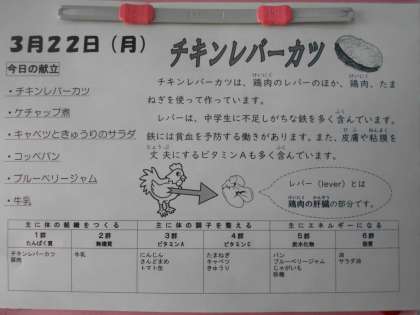 3月22日(月)
チキンレバーカツ
今日の献立
・チキンレバーカツ
・ケチャップ煮
・キャベツときゅうりのサラダ
・コッペパン
・ブルーベリージャム
・牛乳
チキンレバーカツは、鶏肉のレバーのほか、鶏肉、たま
ねぎを使って作っています。
レバーは、中学生に不足しがちな鉄を多く含んでいます。
鉄には貧血を予防する働きがあります。また、皮膚や粘膜を
丈夫にするビタミンAも多く含んでいます。
レバー(lever)とは
鶏肉の肝臓の部分です。
主に体の組織をつくる 主に体の調子を整える 主にエネルギーになる
1群 2群 3群 4群 5群 6群
たんぱく質 無機質 ビタミンA ビタミンC 炭水化物 脂質
チキンレバーカツ 牛乳 にんじん たまねぎ パン 油
鶏肉 さんどまめ キャベツ ブルーベリージャム サラダ油
トマト生 きゅうり じゃがいも
砂糖